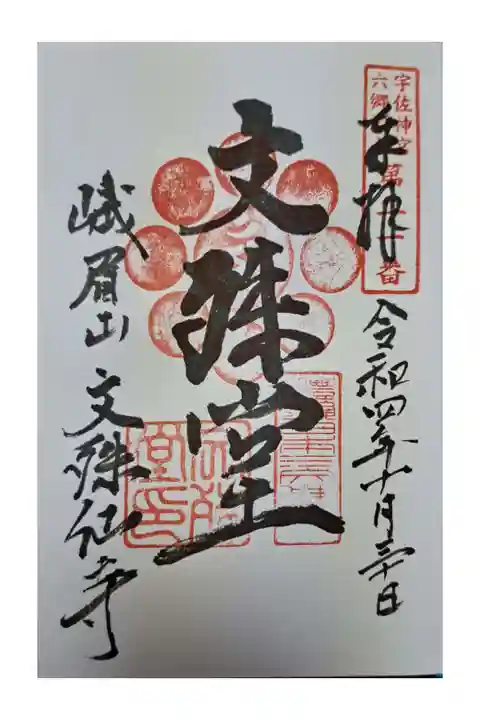 奉拝
宇佐神宮
六郷
第
番
令和四年十月三十日
文殊堂
峨眉山 文殊仙寺